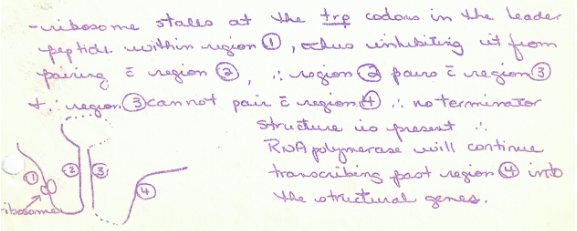 -ribosome stalls at the trp codons in the leader
peptide within region ①, thus inhibiting it from
pairing c̄ region ②, ∴ region ② pairs c̄ region ③
+ ∴ region ③ cannot pair c̄ region ④ ∴ no terminator
structure is present ∴
RNA polymerase will continue
transcribing past region ④ into
the structural genes.
① ② ③ ④
ribosome